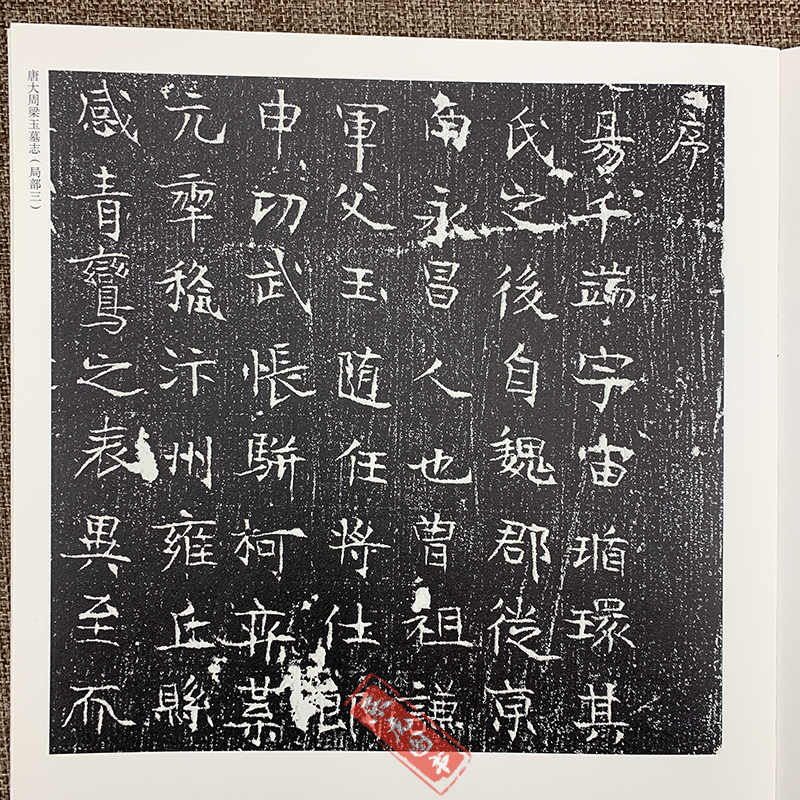 唐大周梁玉墓志（局部三）
序
易千端宇宙循環其
氏之後自魏郡從京
南永昌人也曾祖謙
軍父玉随任將仕郎
申功武帳騈柯弈葉
元率汴州雍丘縣
感青鸞之表異至而